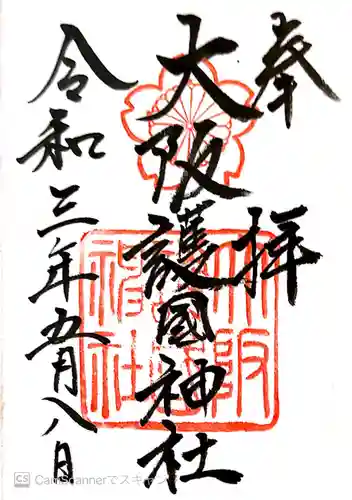 奉拝
大阪護國神社
令和三年五月八日
大阪護國神社
CS CamScannerでスキャン